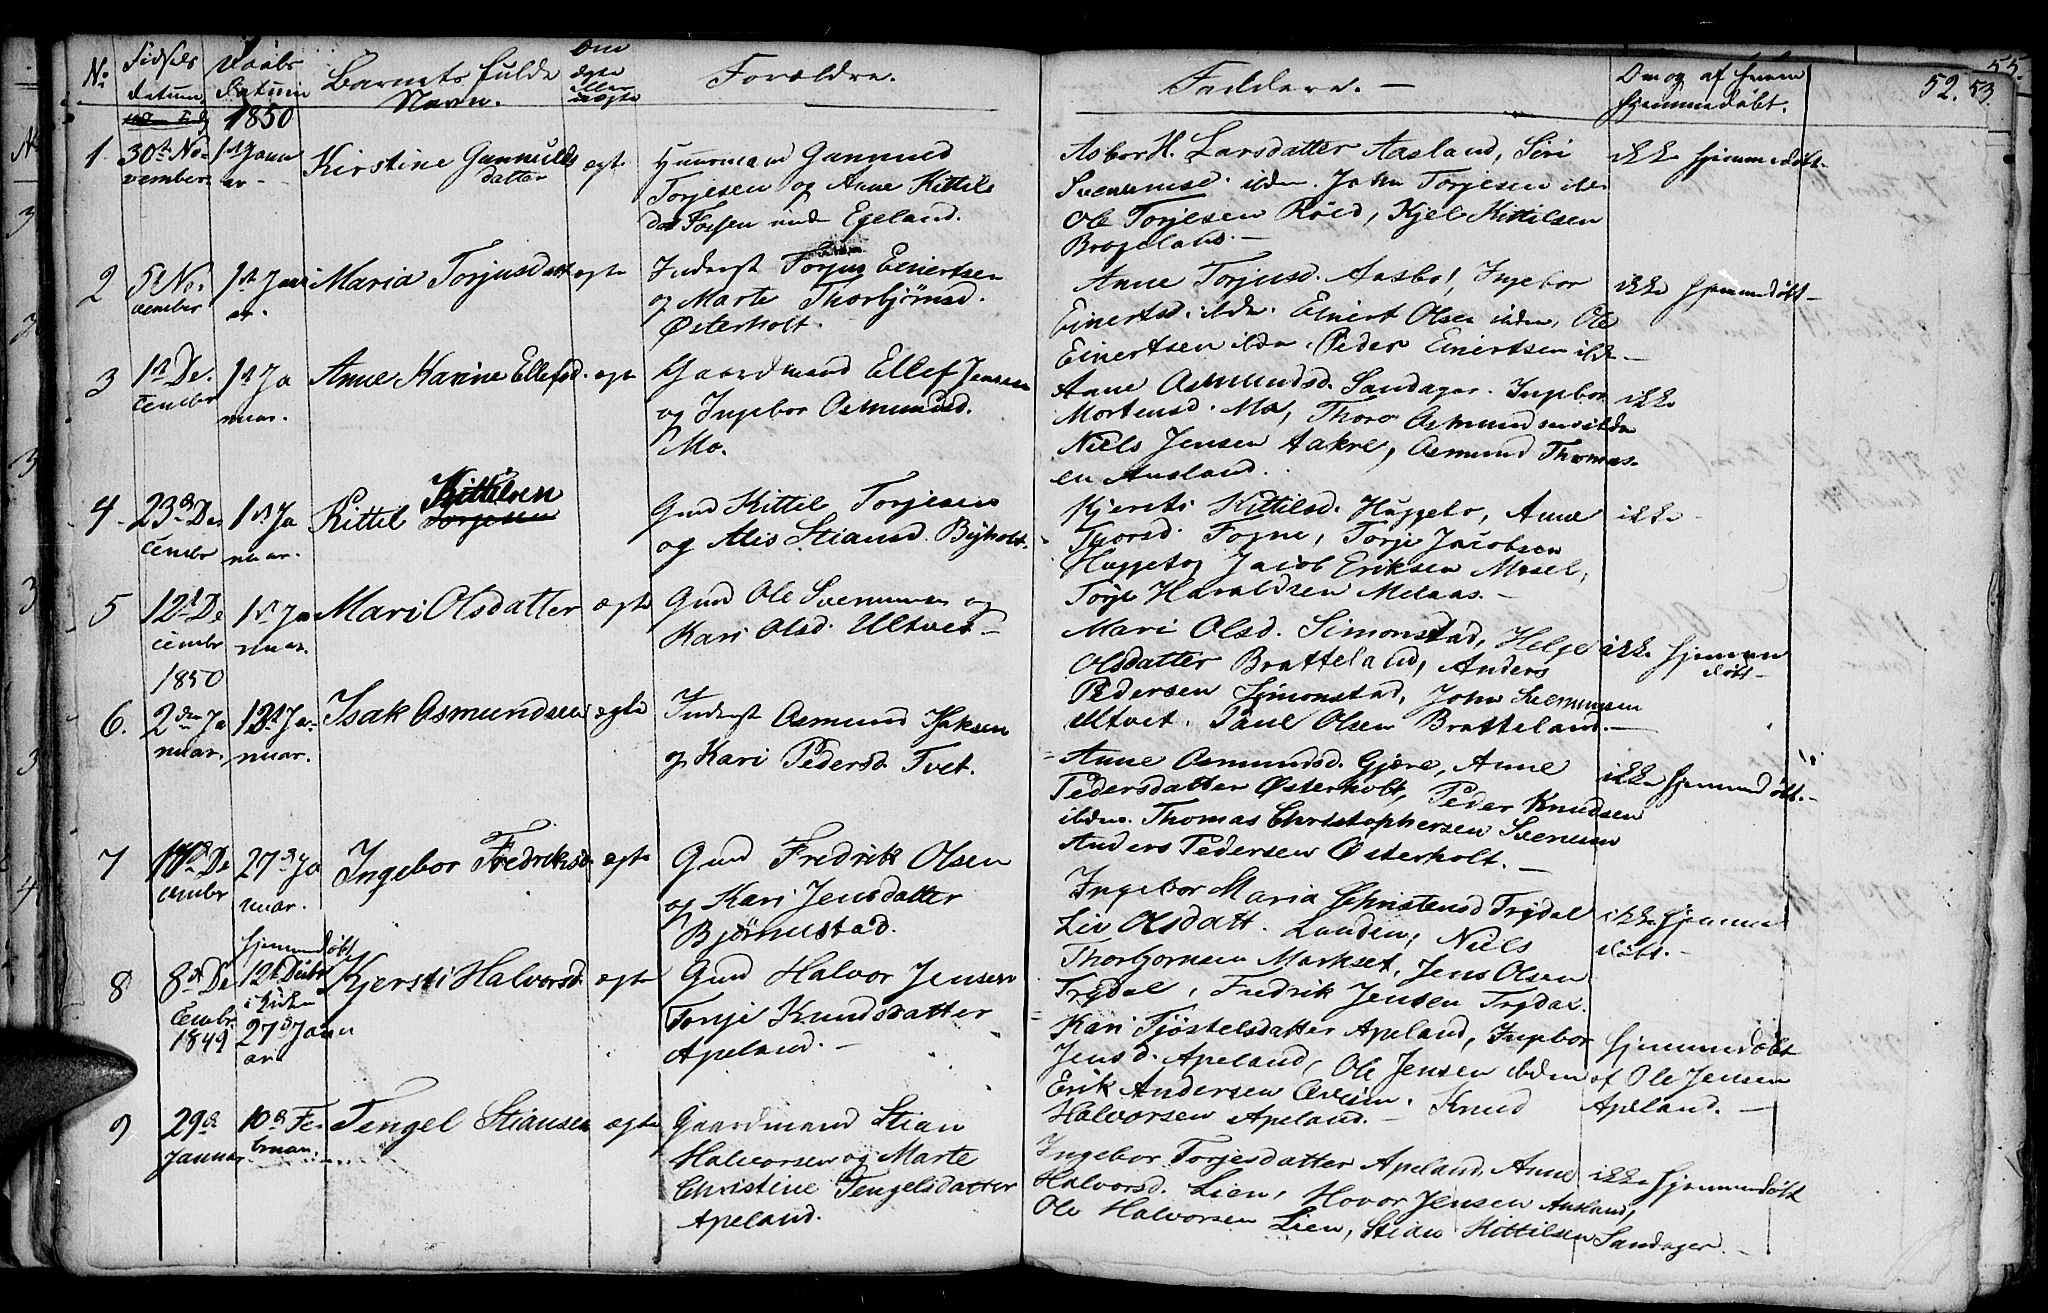 No Fødsels Datum. Daabs Datum 1850 Barnets fulde Navn. Om ægte eller uægte Forældre. Faddere. — Om og af hvem hjemmedøbt. 52. 53. 55.
1 30te November. 1ste Januar — Kirstine Gunmunds datter ægte Huusmand Gunmund
Torjesen og Anne Kittils
dat Fossen und Egeland.
Asbor H. Larsdatter Aasland, Siri
Svenumsd. ibdn. John Torjesen ibd
Ole Torjesen Røed, Kjel Kittilsen
Brageland. —
ikke hjemmedøbt.
2 5te November 1ste Januar. Maria Torjusdatt ægte Inderst Torjus Einertsen
og Marte Thorbjørnsd.
Østerholt.
Anne Torjusd. Aasbø, Ingebor
Einertsd. ibdn. Einert Olsen ibdn. Ole
Einertsen ibdn. Peder Einertsen ibd —
ikke hjemmedøbt —
3 1ste December 1ste Januar. Anne Karine Ellefsd. ægte Gaardmand Ellef Jensen
og Ingebor Osmundsd.
Mo.
Anne Osmundsd. Sandager. Ingebor
Mortensd. Mo, Thore Osmundsen ibdn
Niels Jensen Aakre, Osmund Thomas-
en Ausland.
ikke
4 23de December 1ste Januar. Kittel Kittilsen Torjesen Gmd Kittil Torjesen
og Alis Stiansd. Byholt.
Kjersti Kittilsd. Huggeto, Anne
Thorsd. Fogne, Torje Jacobsen
Huggeto, Jacob Eriksen Mosel,
Torje Haraldsen Melaas. —
ikke —
5 12te December 1ste Januar. Mari Olsdatter ægte Gmd Ole Svenumsen og
Kari Olsd. Ultvet —
Mari Olsd. Simonstad, Helge
Olsdatter Bratteland, Anders
Pedersen Simonstad, John Svenumsen
Ultvet. Paul Olsen Bratteland. —
ikke hjemmedøbt —
1850
6. 2den Januar. 13de Januar. Isak Osmundsen ægte Inderst Osmund Isaksen
og Kari Pedersd. Tvet.
Anne Osmundsd. Gjære, Anne
Pedersdatter Østerholt, Peder Knudsen
ibdn. Thomas Christophersen Svenum
Anders Pedersen Østerholt. —
ikke hjemmedøbt. —
7 17de December 27de Januar. Ingebor Fredriksd. ægte Gmd Fredrik Olsen
og Kari Jensdatter
Bjørnestad.
Ingebor Maria Christensd Trydal
Liv Olsdatt. Landen, Niels
Thorbjornsen Markset, Jens Olsen
Trydal, Fredrik Jensen Trydal.
ikke hjemmedøbt. —
8 8de December 1849 hjemmedøbt 12te Decbr i Kirken 27de Januar Kjersti Halvorsd. ægte Gmd Halvor Jensen
Torje Knudsdatter
Apeland. —
Kari Tjøstelsdatter Apeland, Ingebor
Jensd. Apeland, Ole Jensen ibdem
Erik Andersen Qveim. Knud
Halvorsen Apeland. —
hjemmedøbt
af Ole Jensen
Apeland. —
9 29de Januar 10de Februar. Tengel Stiansen ægte Gaardmand Stian
Halvorsen og Marte
Christine Tengelsdatter
Apeland.
Ingebor Torjesdatter Apeland, Anne
Halvorsd. Lien, Hovor Jensen Ausland,
Ole Halvorsen Lien, Stian Kittilsen Sandager. —
ikke hjemmedøbt